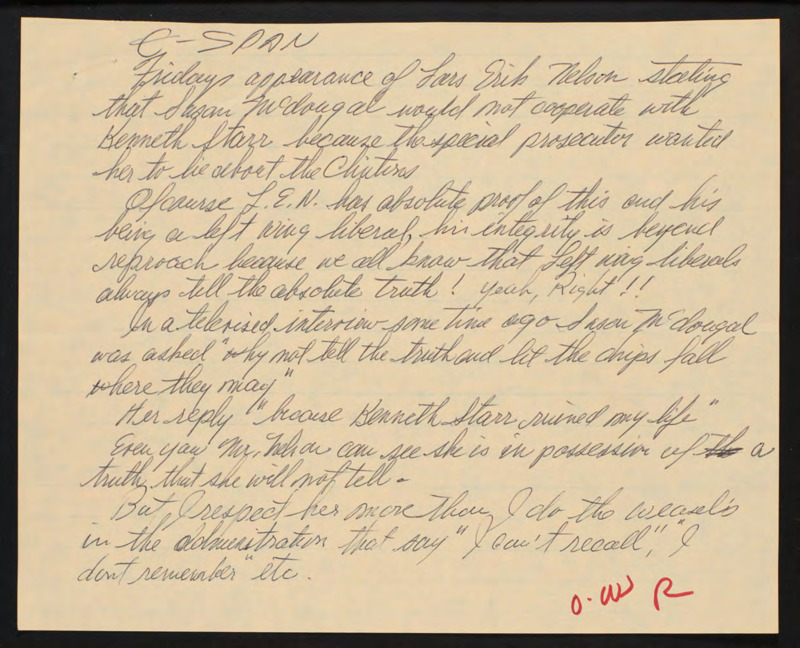 C-SPAN
Fridays appearance of Lars Erik Nelson stating
that Susan McDougal would not cooperate with
Kenneth Starr because the special prosecutor wanted
her to lie about the Clintons
Ofcourse L.E.N. has absolute proof of this and his
being a left wing liberal, his integrity is beyond
reproach because we all know that Left wing liberals
always tell the absolute truth! Yeah, Right!!
In a televised interview some time ago Susan McDougal
was asked "why not tell the truth and let the chips fall
where they may"
Her reply "because Kenneth Starr ruined my life"
Even you Mr. Nelson can see she is in possession of a
truth that she will not tell.
But, I respect her more than I do the weasel's
in the administration that say "I can't recall", "I
dont remember" etc.
O-W R